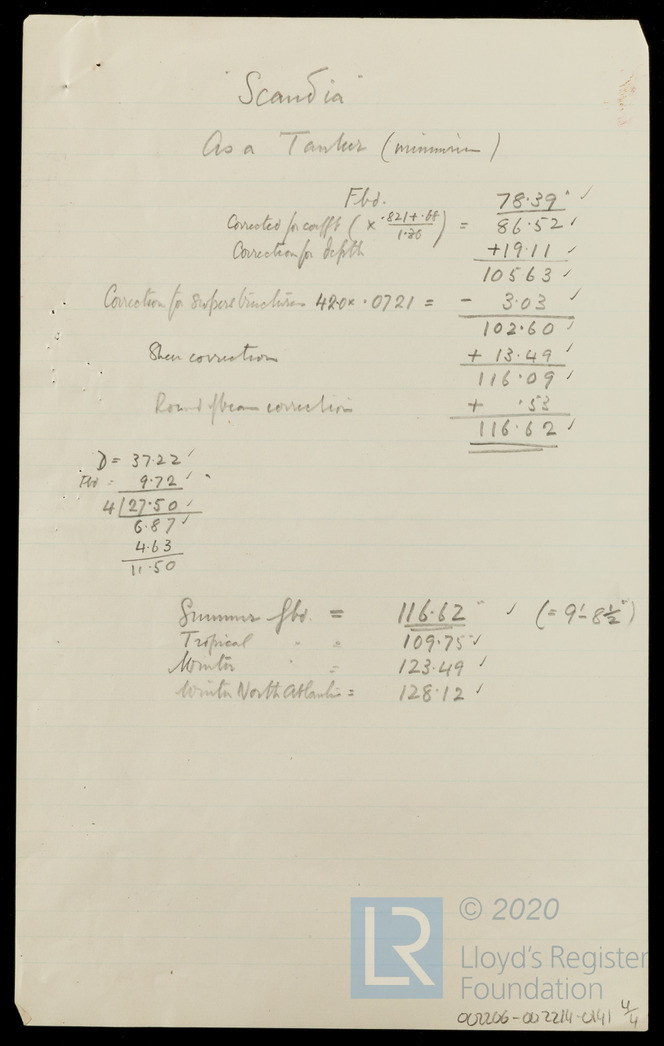 "Scandia"
As a Tanker (minimum)
Fbd. 78.39" ✓
Corrected for coefft (× .821+.68 / 1.36) = 86.52 ✓
Correction for depth +19.11 ✓
10563 ✓
Correction for Superstructures 42.0 × .0721 = - 3.03 ✓
102.60 ✓
Sheer correction + 13.49 ✓
116.09 ✓
Round of beam correction + .53 ✓
116.62 ✓
D = 37.22 ✓
Fbd = 9.72 ✓
4 27.50 ✓
6.87 ✓
4.63
11.50
Summer fbd. = 116.62" ✓ (= 9'-8½")
Tropical " = 109.75 ✓
Winter " = 123.49 ✓
Winter North Atlantic = 128.12 ✓
LR
© 2020
Lloyd's Register
Foundation
002206-002214-0141 4/4